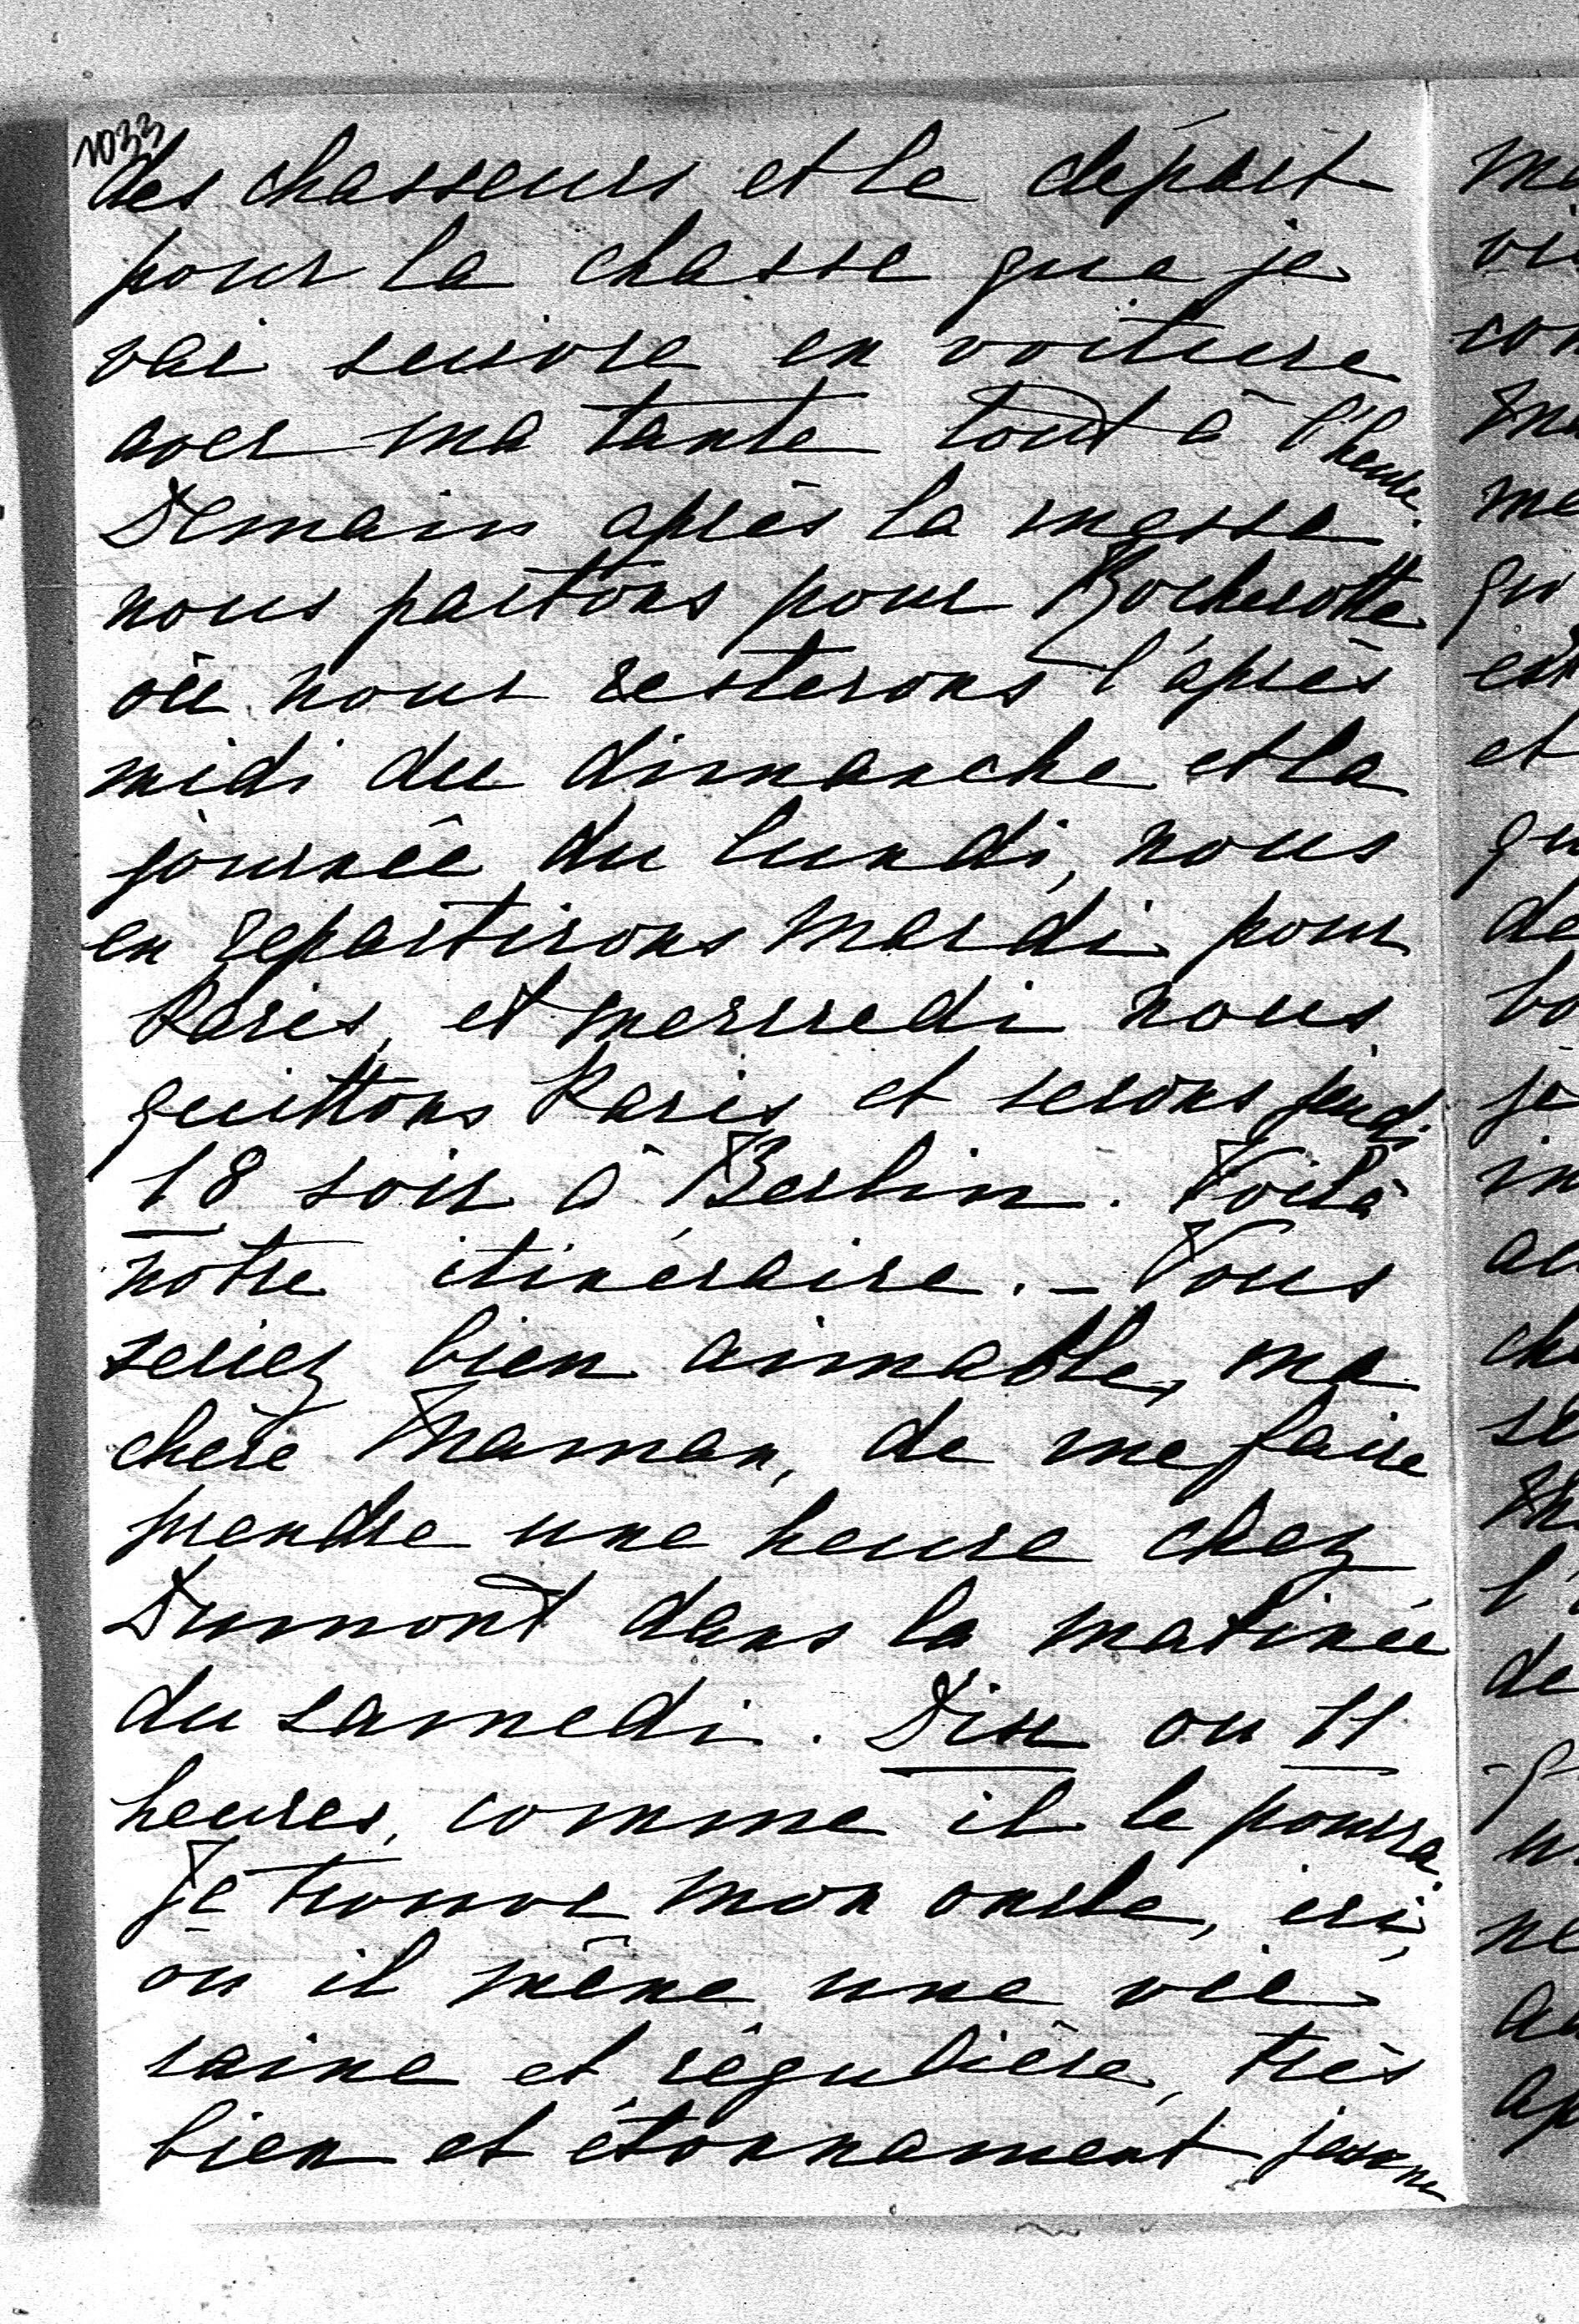 1033
des chasseurs et le départ
pour la chasse que je
vai suivre en voiture
avec ma tante tout à l'heure.
Demain après la messe
nous partons pour Rochecotte
où nous resterons l'après
midi du dimanche et la
journée du lundi, nous
en repartirons mardi pour
Paris, et mercredi nous
quittons Paris et serons jeudi
18 soir à Berlin. Voilà
notre itinéraire. _ Vous
seriez bien aimable, ma
chère Maman, de me faire
prendre une heure chez
Dumont dans la matinée
du samedi. Dix ou 11
heures, comme il le pourra.
Je trouve mon oncle, ici,
où il mène une vie
saine et régulière, très
bien et étonnament jeune